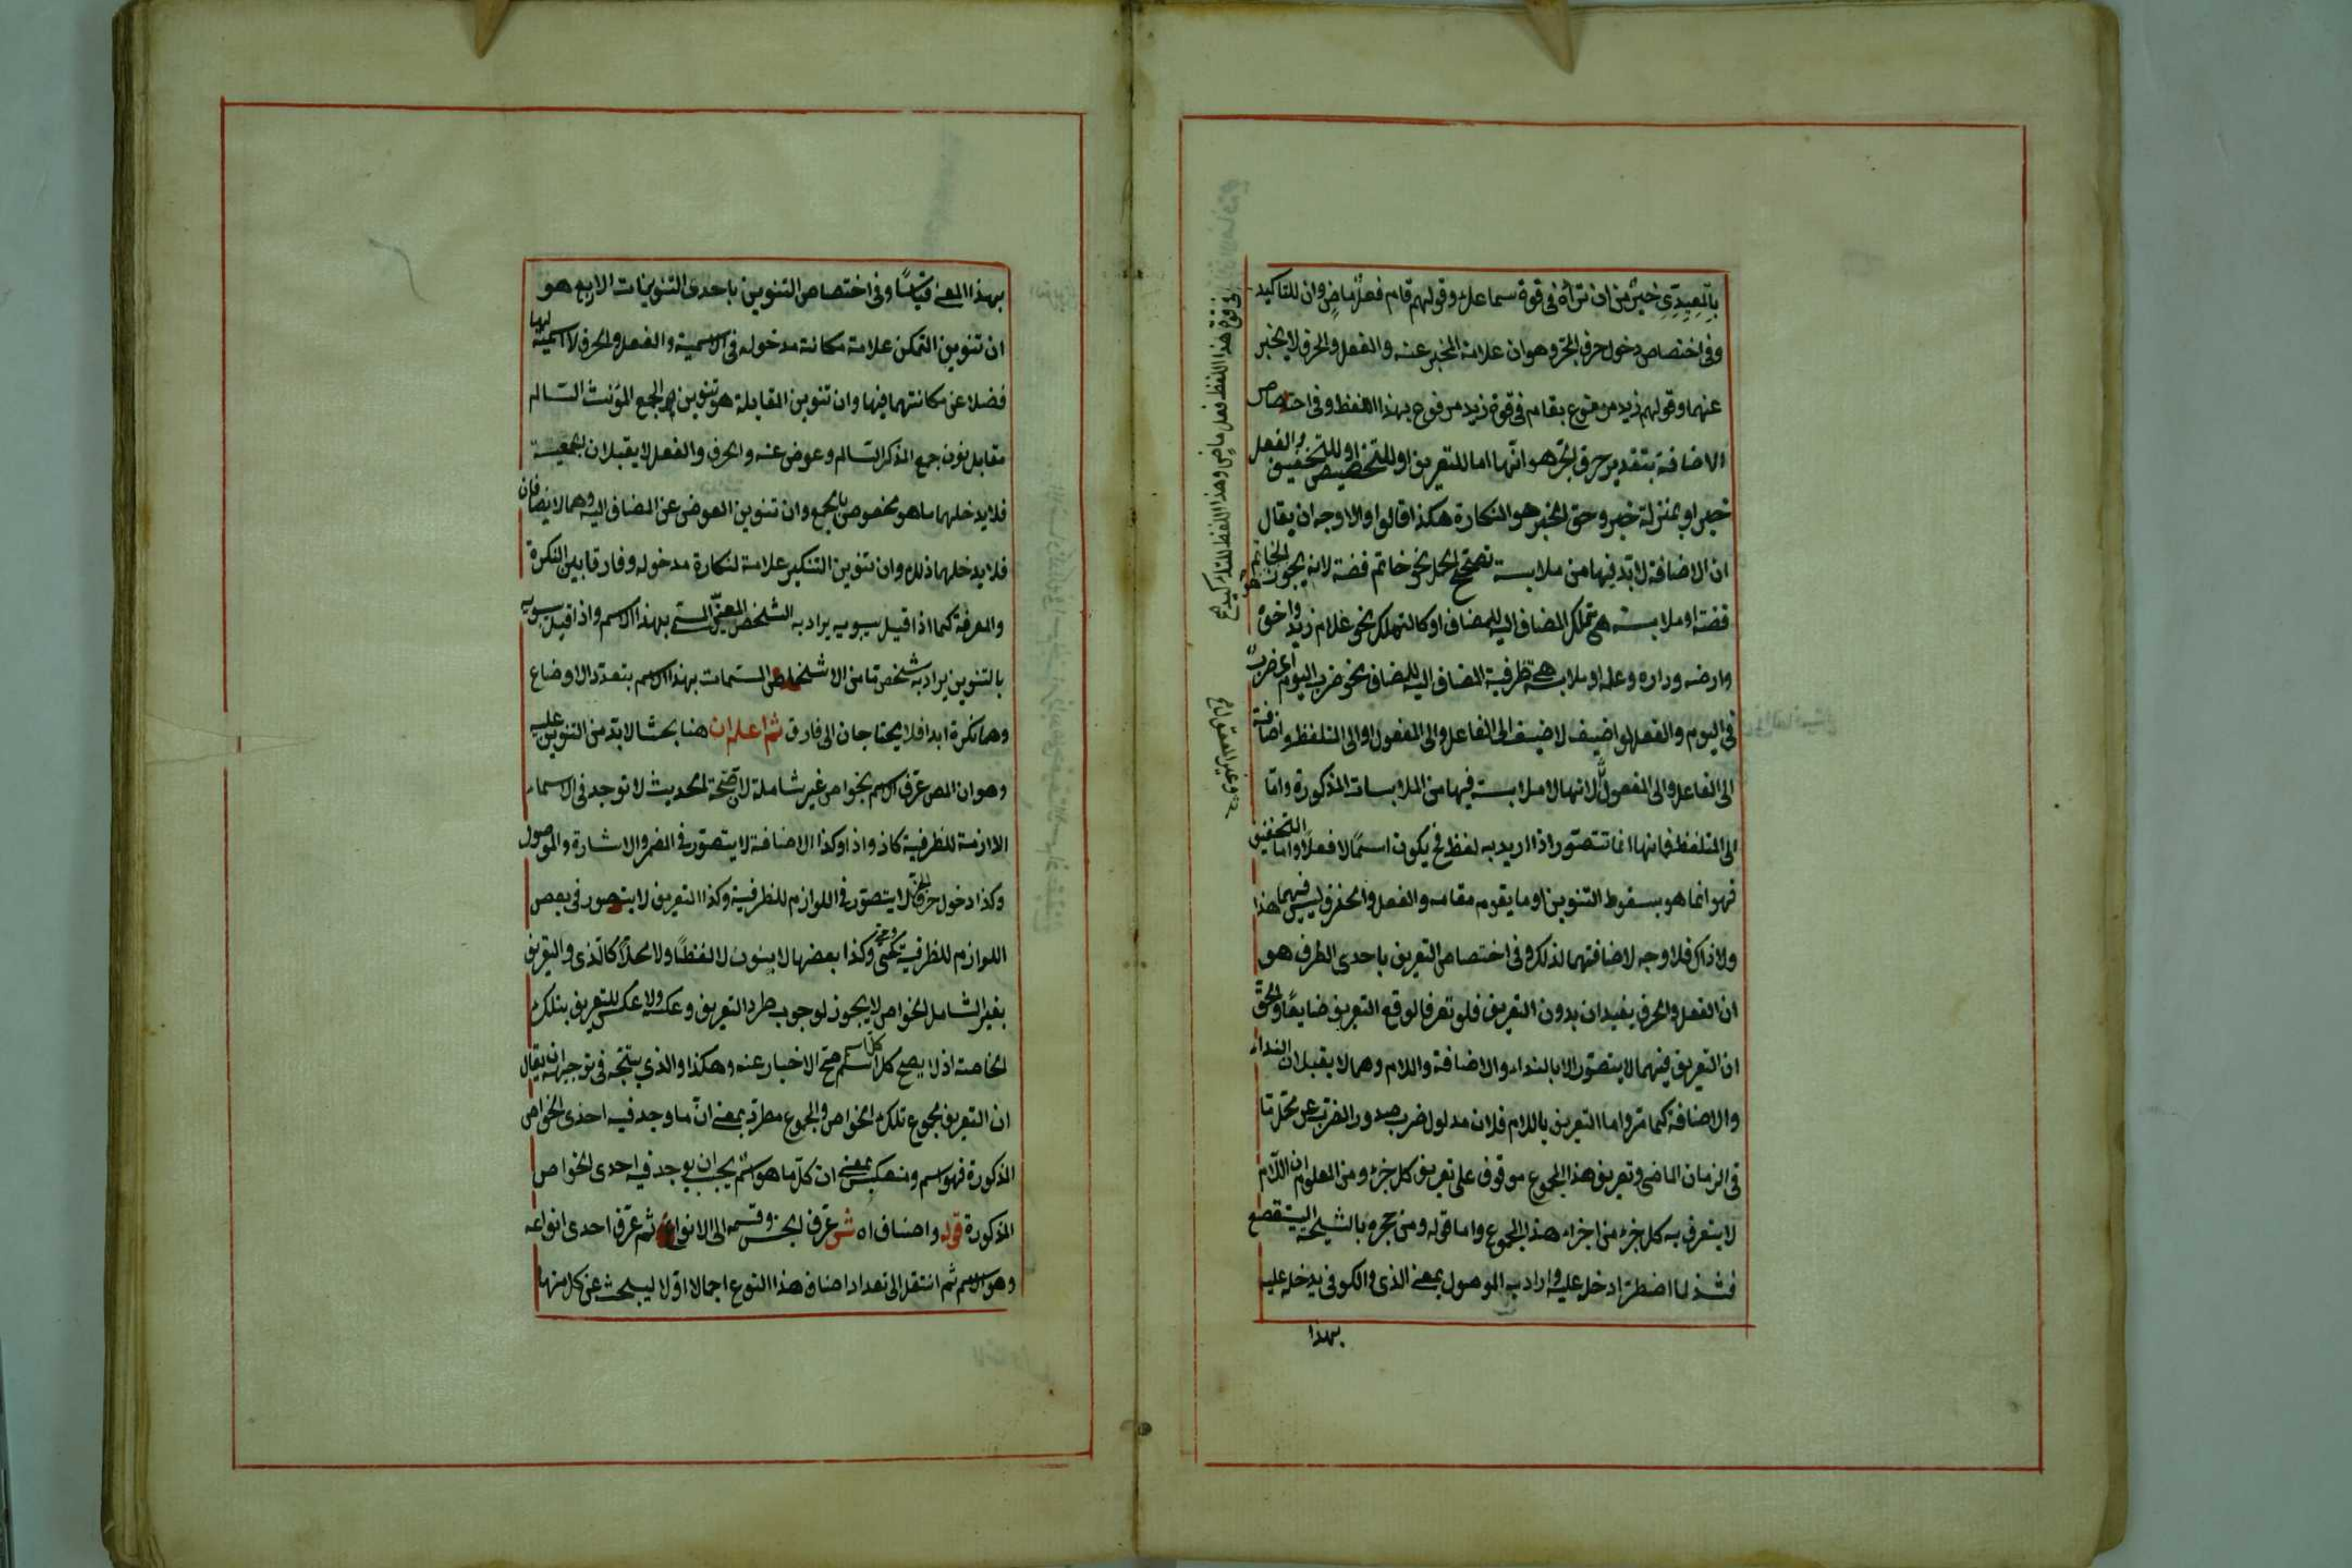 بالمعيدي خير من ان تراه في قوة سماعك وقولهم قام فعل ماض وان للتاكيد
وفي اختصاص دخول حرف الجر وهو ان علامة المخبر عنه والفعل والحرف لا يخبر
عنهما وقولهم زيد مرفوع بقام في قوة زيد مرفوع بهذا اللفظ وفي اختصاص
الاضافة بتقدير حرف الجر هو انها اما للتعريف او للتخصيص او للتخفيف والفعل
خبر او بمنزلة خبر وحق الخبر هو النكارة هكذا قالوا والاوجه ان يقال
ان الاضافة لا بد فيها من ملابسة تصحح الحمل نحو خاتم فضة لانه يجوز الخاتم
فضة او ملابسة هي تملك المضاف اليه للمضاف او كالتملك نحو غلام زيد واخوه
وارضه وداره وعلمه او ملابسة هي ظرفية المضاف اليه للمضاف نحو ضرب اليوم اي ضرب
في اليوم والفعل لو اضيف لاضيف الى الفاعل والى المفعول او الى المتلفظ واضافته
الى الفاعل والى المفعول لانها لا ملابسة فيها من الملابسات المذكورة واما
الى المتلفظ فانها انما تتصور اذا اريد به لفظ فح يكون اسما لا فعلا واما التخفيف
فهو انما هو بسقوط التنوين او ما يقوم مقامه والفعل والحرف ليس فيهما هذا
ولا ذاك فلا وجه لاضافتهما لذلك وفي اختصاص التعريف باحدى الطرف هو
ان الفعل والحرف يفيدان بدون التعريف فلو تعرفا لوقع التعريف ضايعا والحق
ان التعريف فيهما لا يتصور الا بالنداء والاضافة واللام وهما لا يقبلان النداء
والاضافة كما مر واما التعريف باللام فلان مدلول ضرب صدور الضرب عن محل ما
في الزمان الماضي وتعريف هذا المجموع موقوف على تعريف كل جزء ومن المعلوم ان اللام
لا يتعرف به كل جزء من اجزاء هذا المجموع واما قوله ومن جحره بالشيحة اليتقصع
فشذ لما اضطر ادخل عليه واراد به الموصول بمعنى الذي والكوفي يدخله عليه
بهذا
في قوة هذا اللفظ فعل ماض وهذا اللفظ للتاكيد
بهذا المعنى قياسا وفي اختصاص التنوين باحدى التنوينات الاربع هو
ان تنوين التمكن علامة مكانة مدخوله في الاسمية والفعل والحرف لا اسمية لهما
فضلا عن مكانتهما فيها وان تنوين المقابلة هو تنوين الجمع المؤنث السالم
مقابل نون جمع المذكر السالم وعوض عنه والحرف والفعل لا يقبلان الجمعية
فلا يدخلهما ما هو مخصوص بالجمع وان تنوين العوض عن المضاف اليه وهما لا يضافان
فلا يدخلهما ذلك وان تنوين التنكير علامة لنكارة مدخوله وفارقا بين النكرة
والمعرفة كما اذا قيل سيبويه يراد به الشخص المعين المسمى بهذا الاسم واذا قيل سيبويه
بالتنوين يراد به شخص ما من الاشخاص المسميات بهذا الاسم بتعدد الاوضاع
وهما نكرة ابدا فلا يحتاجان الى فارق ثم اعلم ان هنا بحثا لا بد من التنوين عليه
وهو ان المص عرف الاسم بخواص غير شاملة لان صحة الحديث لا توجد في الاسماء
الازمة للظرفية كاذ واذا وكذا الاضافة لا يتصور في المضمر والاشارة والموصول
وكذا دخول حرف الجر لا يتصور في اللوازم للظرفية وكذا التعريف لا يتصور في بعض
اللوازم للظرفية كمتى وكذا بعضها لا ينون لا لفظا ولا محلا كالذي والتعريف
بغير الشامل لخواص لا يجوز لوجوب طرد التعريف وعكسه ولا عكس للتعريف بتلك
الخاصة اذ لا يصح كل اسم صح الاخبار عنه وهكذا والذي يتجه في توجيهه ان يقال
ان التعريف مجموع تلك الخواص والمجموع مطرد بمعنى ان ما وجد فيه احدى الخواص
المذكورة فهو اسم ومنعكس بمعنى ان كل ما هو اسم يجب ان يوجد فيه احدى الخواص
المذكورة قوله واصنافه ش عرف الجنس وقسمه الى الانواع ثم عرف احدى انواعه
وهو الاسم ثم انتقل الى تعداد اصناف هذا النوع اجمالا اولا ليبحث عن كل منها